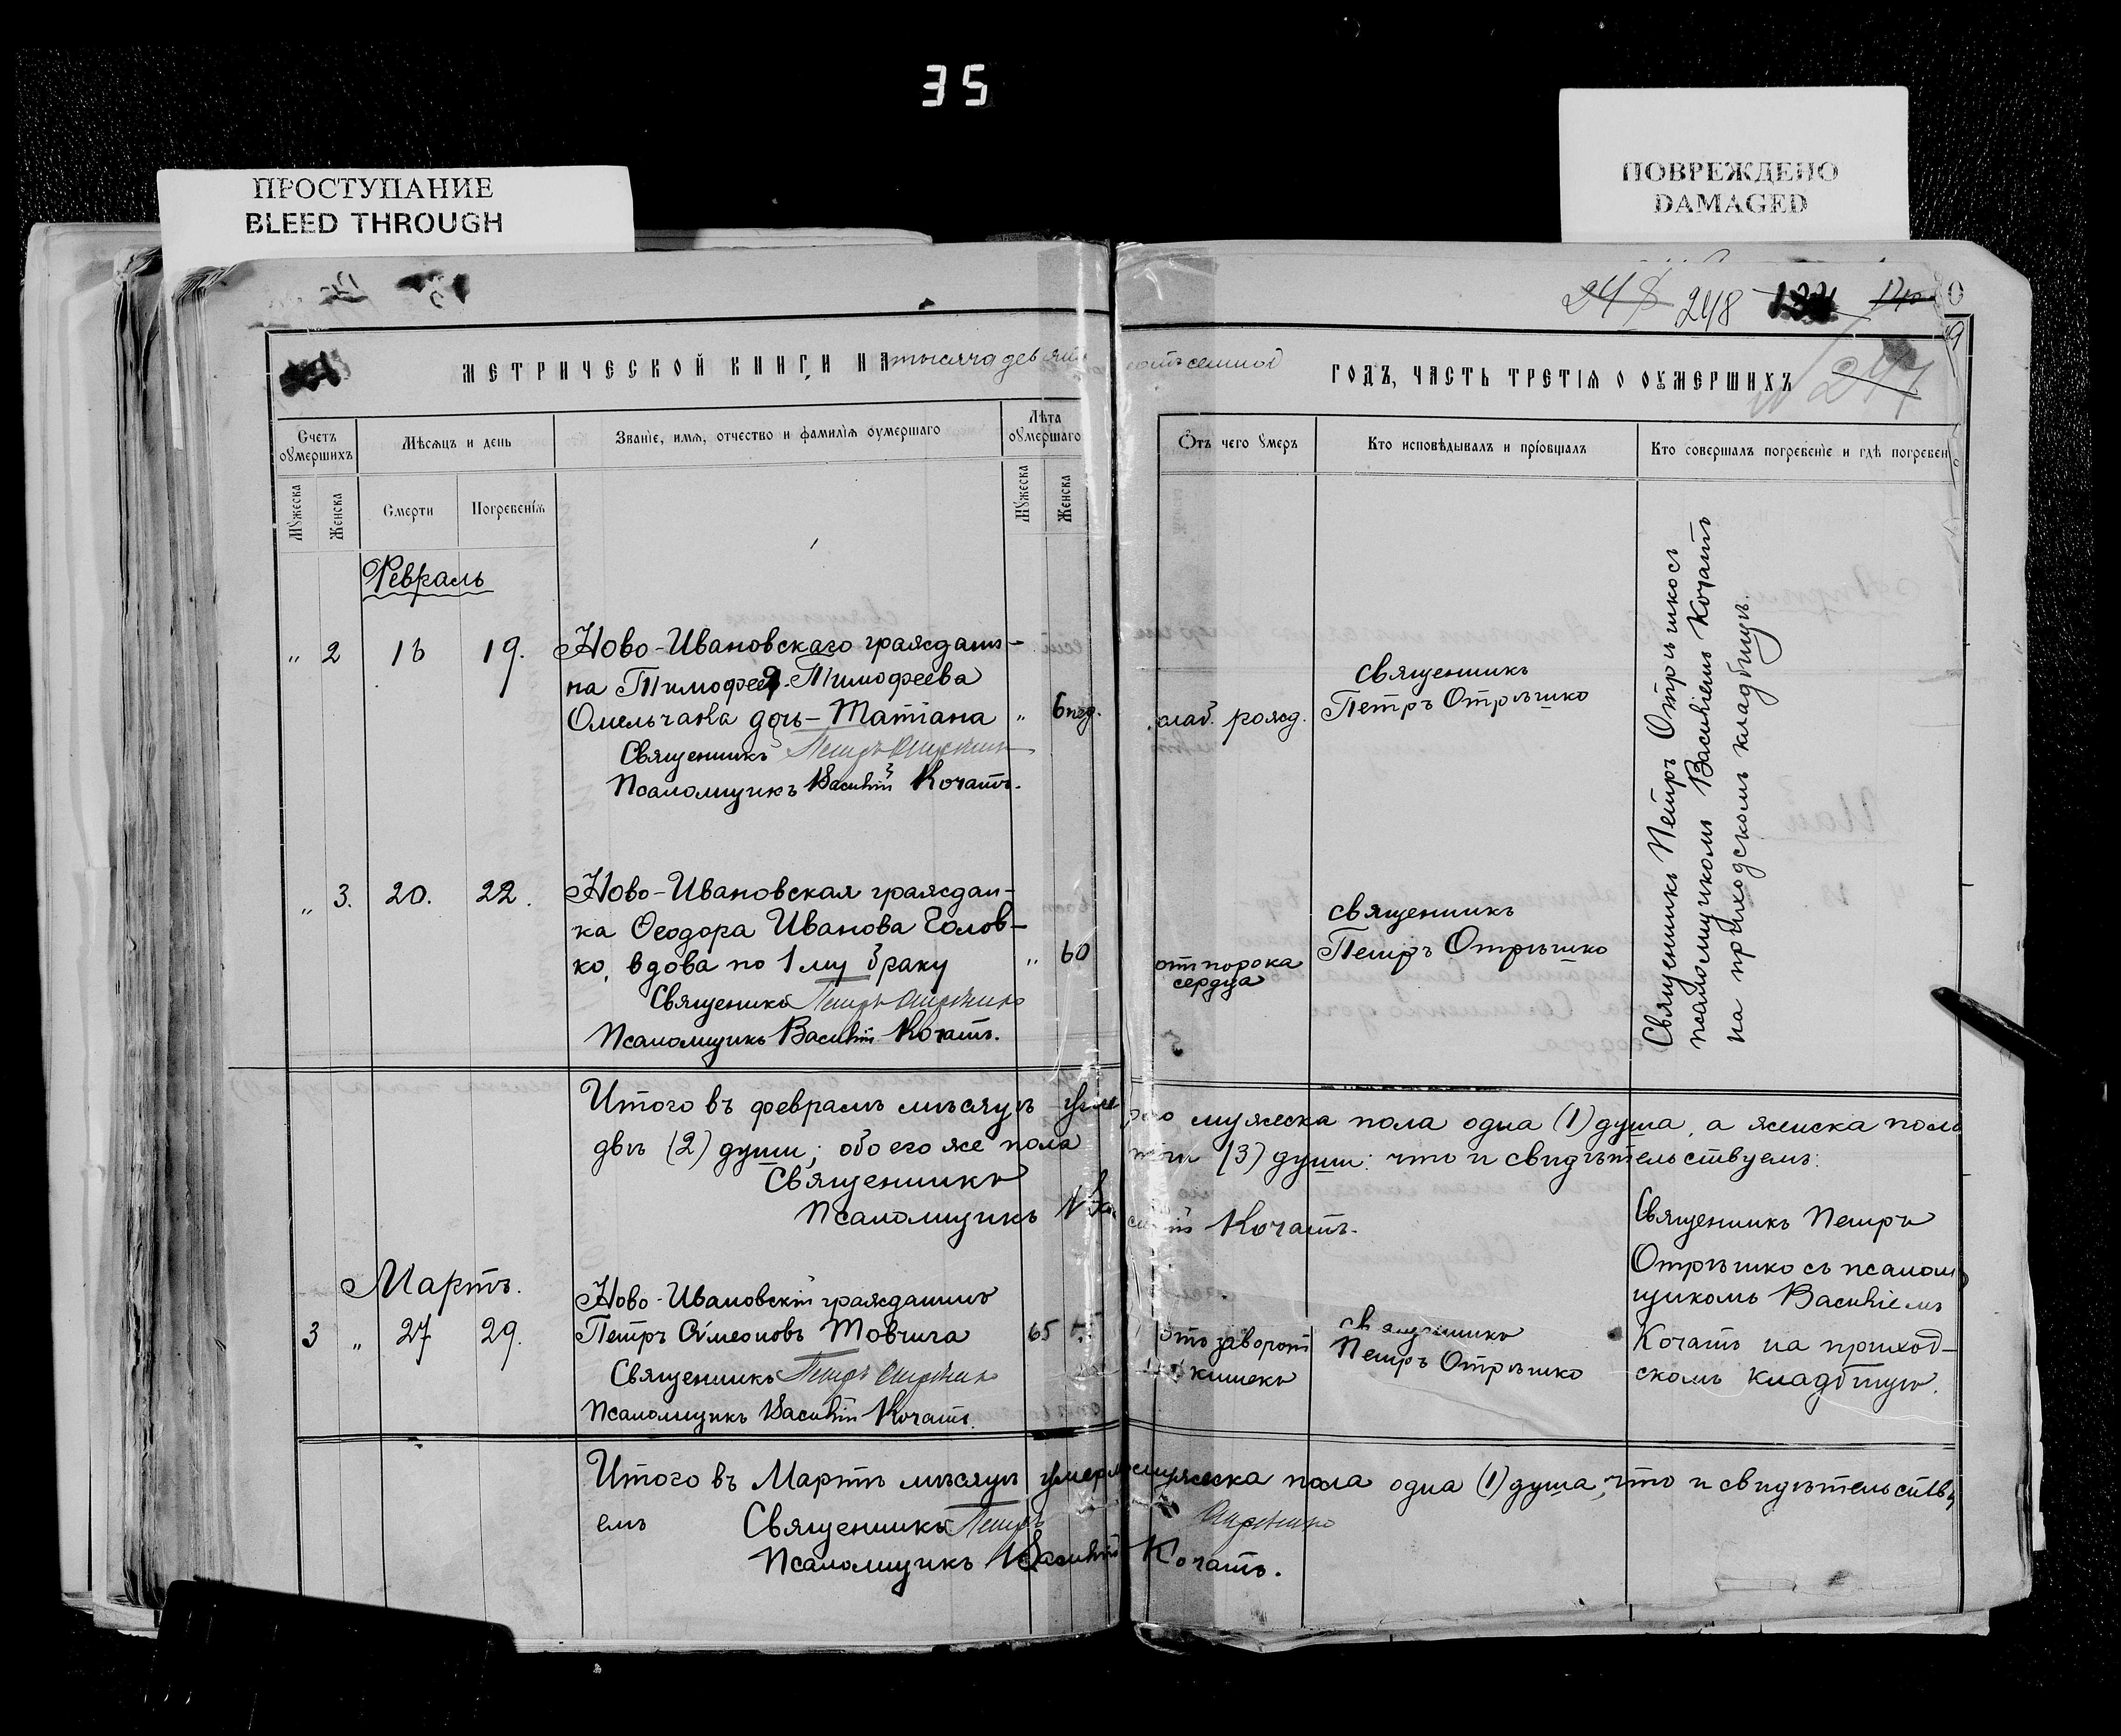 35
ПРОСТУПАНИЕ
BLEED THROUGH
ПОВРЕЖДЕНО
DAMAGED
248 248
247
МЕТРИЧЕСКОЙ КНИГИ НА тысяча девять сотъ седмой ГОДЪ, ЧАСТЬ ТРЕТІЯ О ОУМЕРШИХЪ
Счетъ оумершихъ
Мѣсяцъ и день
Званіе, имя, отчество и фамилія оумершаго
Лѣта оумершаго
Отъ чего умеръ
Кто исповѣдывалъ и пріобщалъ
Кто совершалъ погребеніе и гдѣ погребен
Мужеска
Женска
Смерти
Погребенія
Мужеска
Женска
Февраль
„ 2 18 19. Ново-Ивановскаго граждани-
на Тимофея Тимофеева
Омельчака дочь - Татіана „ 6 нед.
Священникъ Петръ Отрѣшко
Псаломщикъ Василій Кочатъ.
слаб. рожд.
священникъ
Петръ Отрѣшко
Священникъ Петръ Отрѣшко съ
псаломщикомъ Василіемъ Кочатъ
на приходскомъ кладбищѣ.
„ 3. 20. 22. Ново-Ивановская граждан-
ка Ѳеодора Иванова Голов-
ко, вдова по 1 му браку „ 60
Священникъ Петръ Отрѣшко
Псаломщикъ Василій Кочатъ.
отъ порока
сердца
священникъ
Петръ Отрѣшко
Итого въ февралѣ мѣсяцѣ умерло мужеска пола одна (1) душа, а женска пола
двѣ (2) души; обоего же пола три (3) души: что и свидѣтельствуемъ:
Священникъ
Псаломщикъ Василій Кочатъ.
Мартъ.
3 „ 27 29. Ново-Ивановскій гражданинъ
Петръ Сѵмеоновъ Товчига 65
Священникъ Петръ Отрѣшко
Псаломщикъ Василій Кочатъ.
отъ заворот
кишекъ
священникъ
Петръ Отрѣшко
Священникъ Петръ
Отрѣшко съ псалом
щикомъ Василіемъ
Кочатъ на приход-
скомъ кладбищѣ.
Итого въ Мартѣ мѣсяцѣ умерло мужеска пола одна (1) душа, что и свидѣтельству
емъ Священникъ Петръ Отрѣшко
Псаломщикъ Василій Кочатъ.